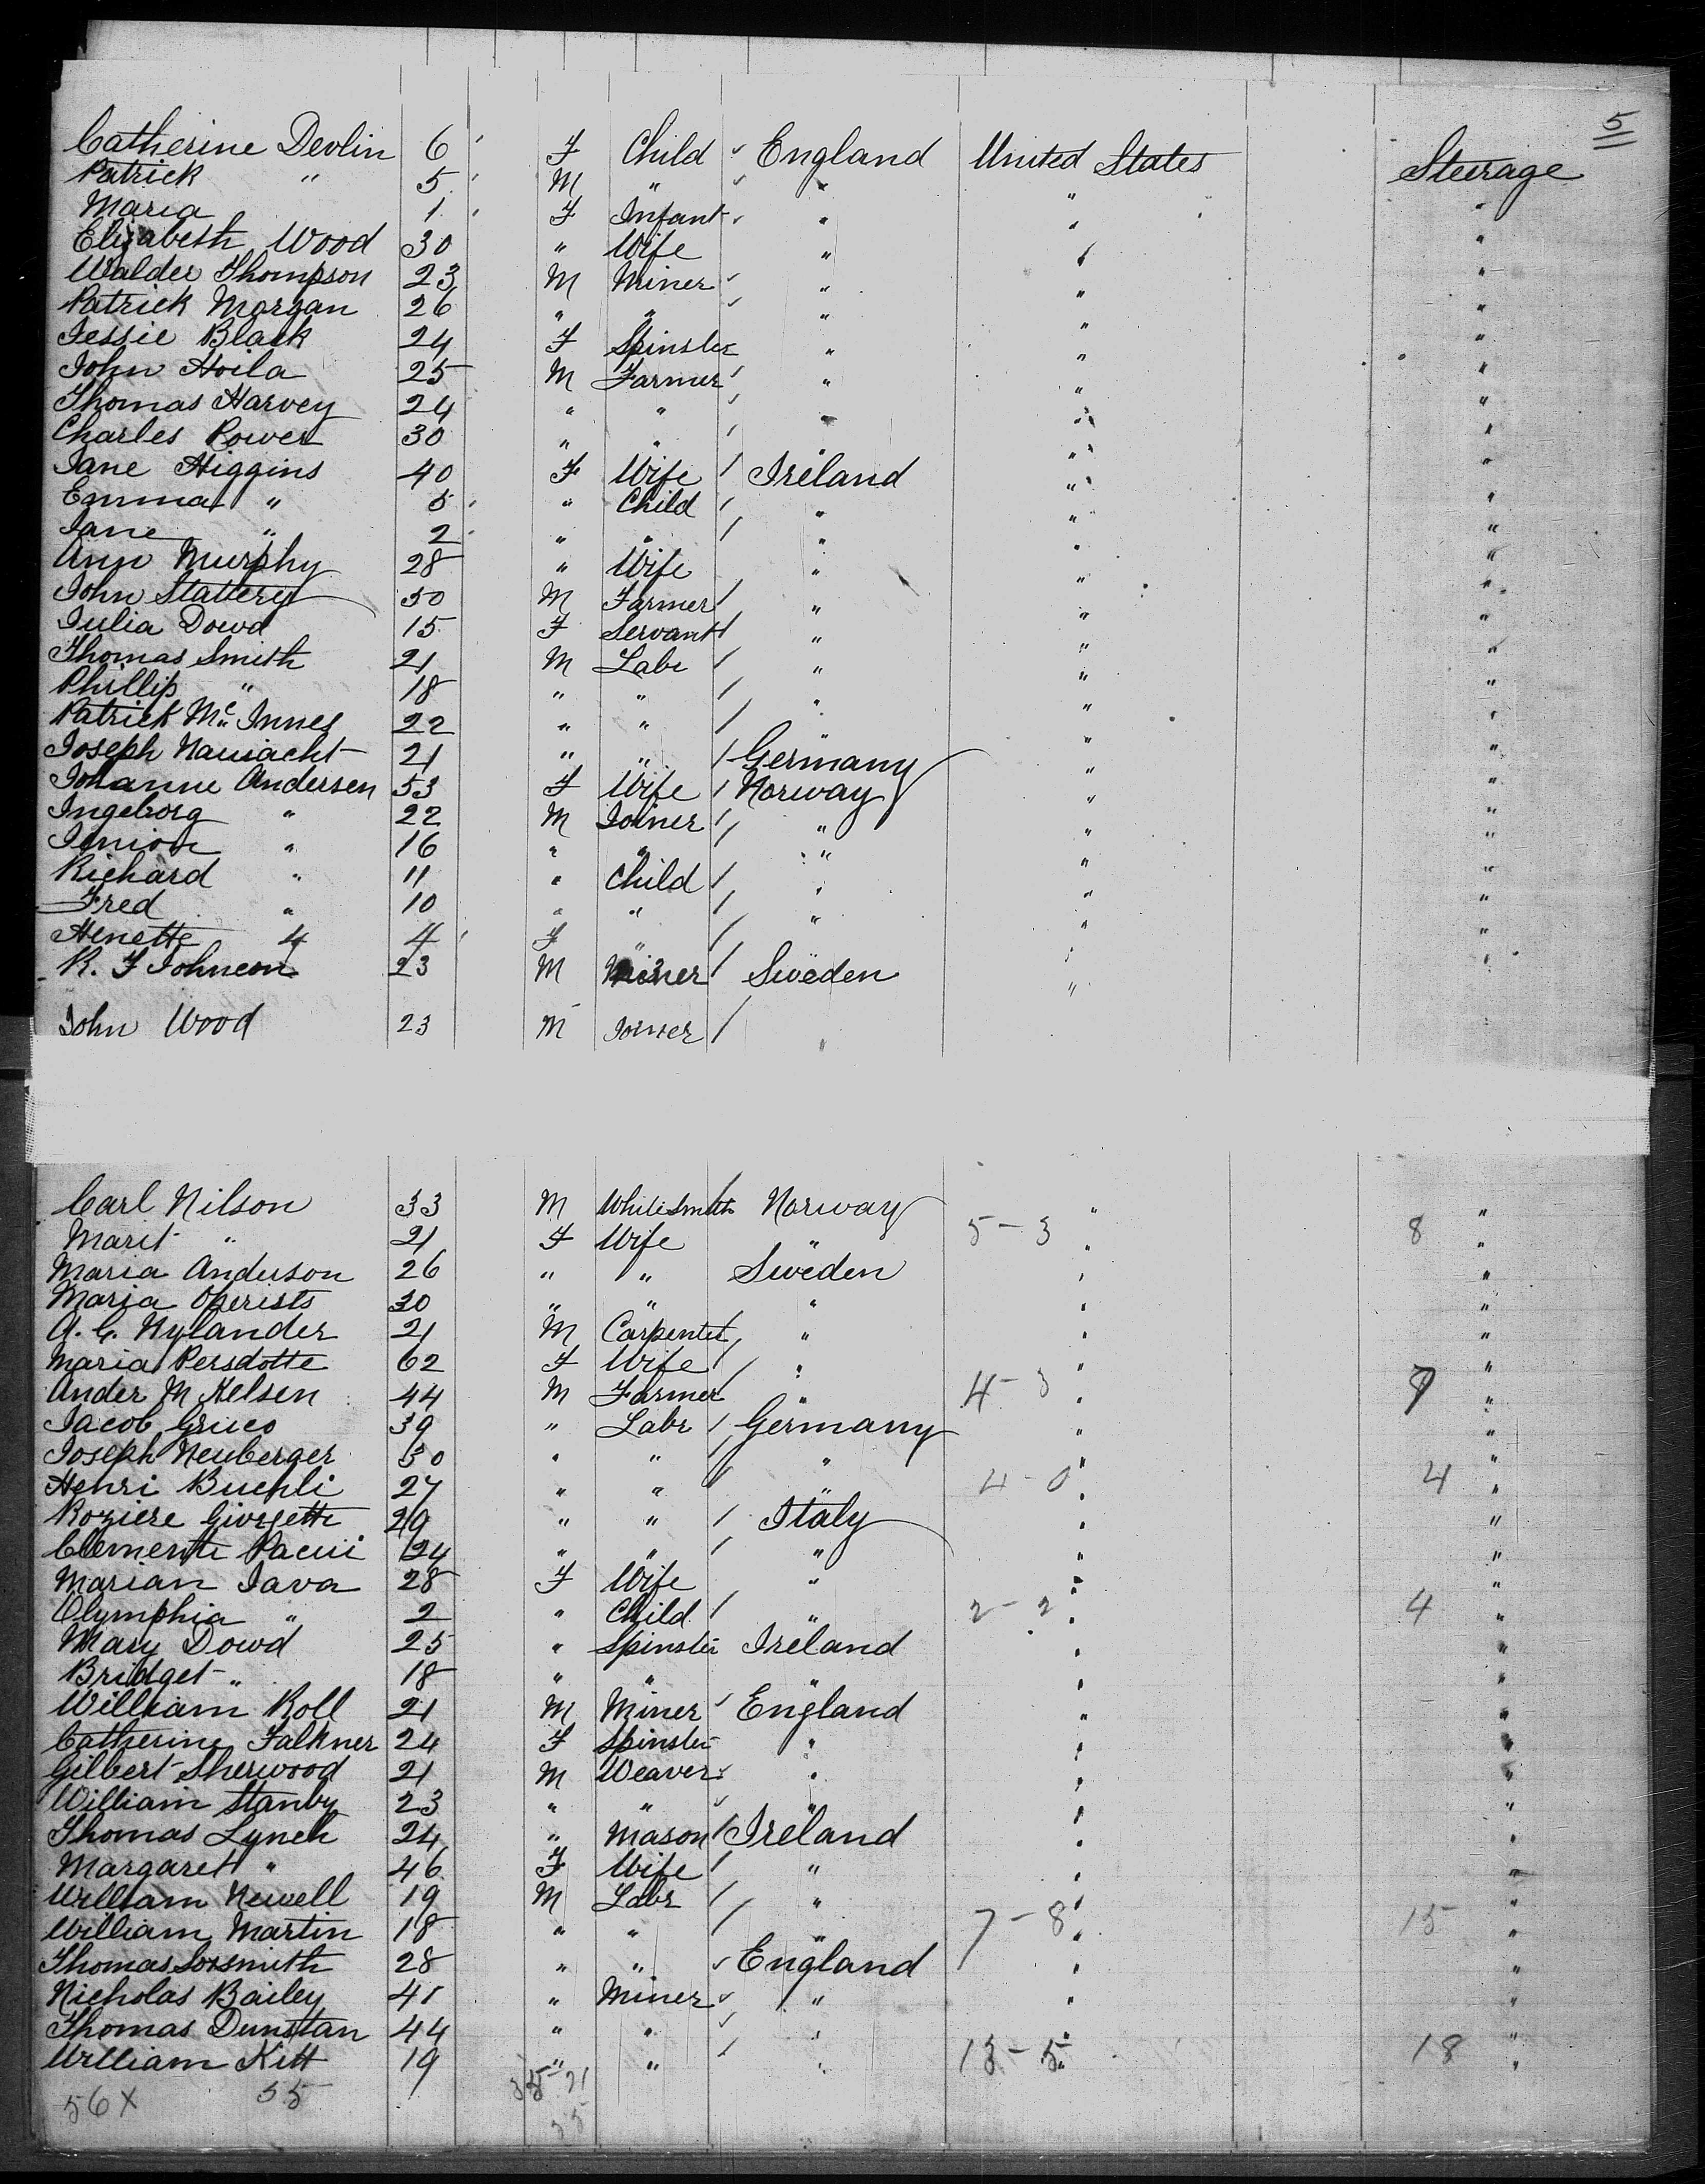 5
Catherine Devlin 6 F Child England United States Steerage
Patrick " 5 M " " " "
Maria 1 F Infant " " "
Elizabeth Wood 30 " Wife " " "
Walder Thompson 23 M Miner " " "
Patrick Morgan 26 " " " " "
Jessie Black 24 F Spinster " " "
John Hoila 25 M Farmer " " "
Thomas Harvey 24 " " " " "
Charles Power 30 " " " "
Jane Higgins 40 F Wife Ireland " "
Emma " 5 " Child " " "
Jane " 2 " " " " "
Ann Murphy 28 " Wife " " "
John Stattery 50 M Farmer " " "
Julia Dowd 15 F Servant " " "
Thomas Smith 21 M Labr " " "
Phillip " 18 " " " " "
Patrick Mc Innes 22 " " " " "
Joseph 21 " " Germany " "
Johanne Andersen 53 F Wife Norway " "
Ingeborg " 22 M Joiner " " "
Junior " 16 " " " " "
Richard " 11 " Child " " "
Fred " 10 " " " " "
Henette " 4 F " " "
R. F Johnson 23 M Miner Sweden " "
John Wood 23 M Joiner "
Carl Nilson 33 M Whitesmith Norway " "
Marit " 21 F Wife " 5-3 " 8 "
Maria Anderson 26 " " Sweden " "
Maria Operists 30 " " " " "
A. C. Nylander 21 M Carpenter " " "
Maria Persdotte 62 F Wife " " "
Ander M Kelsen 44 M Farmer " 4-3 " "
Jacob Grueo 39 " Labr Germany " "
Joseph Neuberger 30 " " " " "
Henri Buehli 27 " " " 4-0 " 4 "
Roziere Giorgette 29 " " Italy " "
Clemente Pacui 24 " " " " "
Marian Java 28 F Wife " " "
Olymphia " 2 " Child " 2-2 " 4 "
Mary Dowd 25 " Spinster Ireland " "
Bridget " 18 " " " " "
William Roll 21 M Miner England " "
Catherine Falkner 24 F Spinster " " "
Gilbert Sherwood 21 M Weaver " " "
William Stanby 23 " " " " "
Thomas Lynch 24 " Mason Ireland " "
Margaret " 46 F Wife " " "
William Newell 19 M Labr " " "
William Martin 18 " " " 7-8 " 15 "
Thomas Soxsmith 28 " " England " "
Nicholas Bailey 41 " Miner " " "
Thomas Dunstan 44 " " " " "
William Kitt 19 " " " 13-5 " 18 "
56 X 55 21